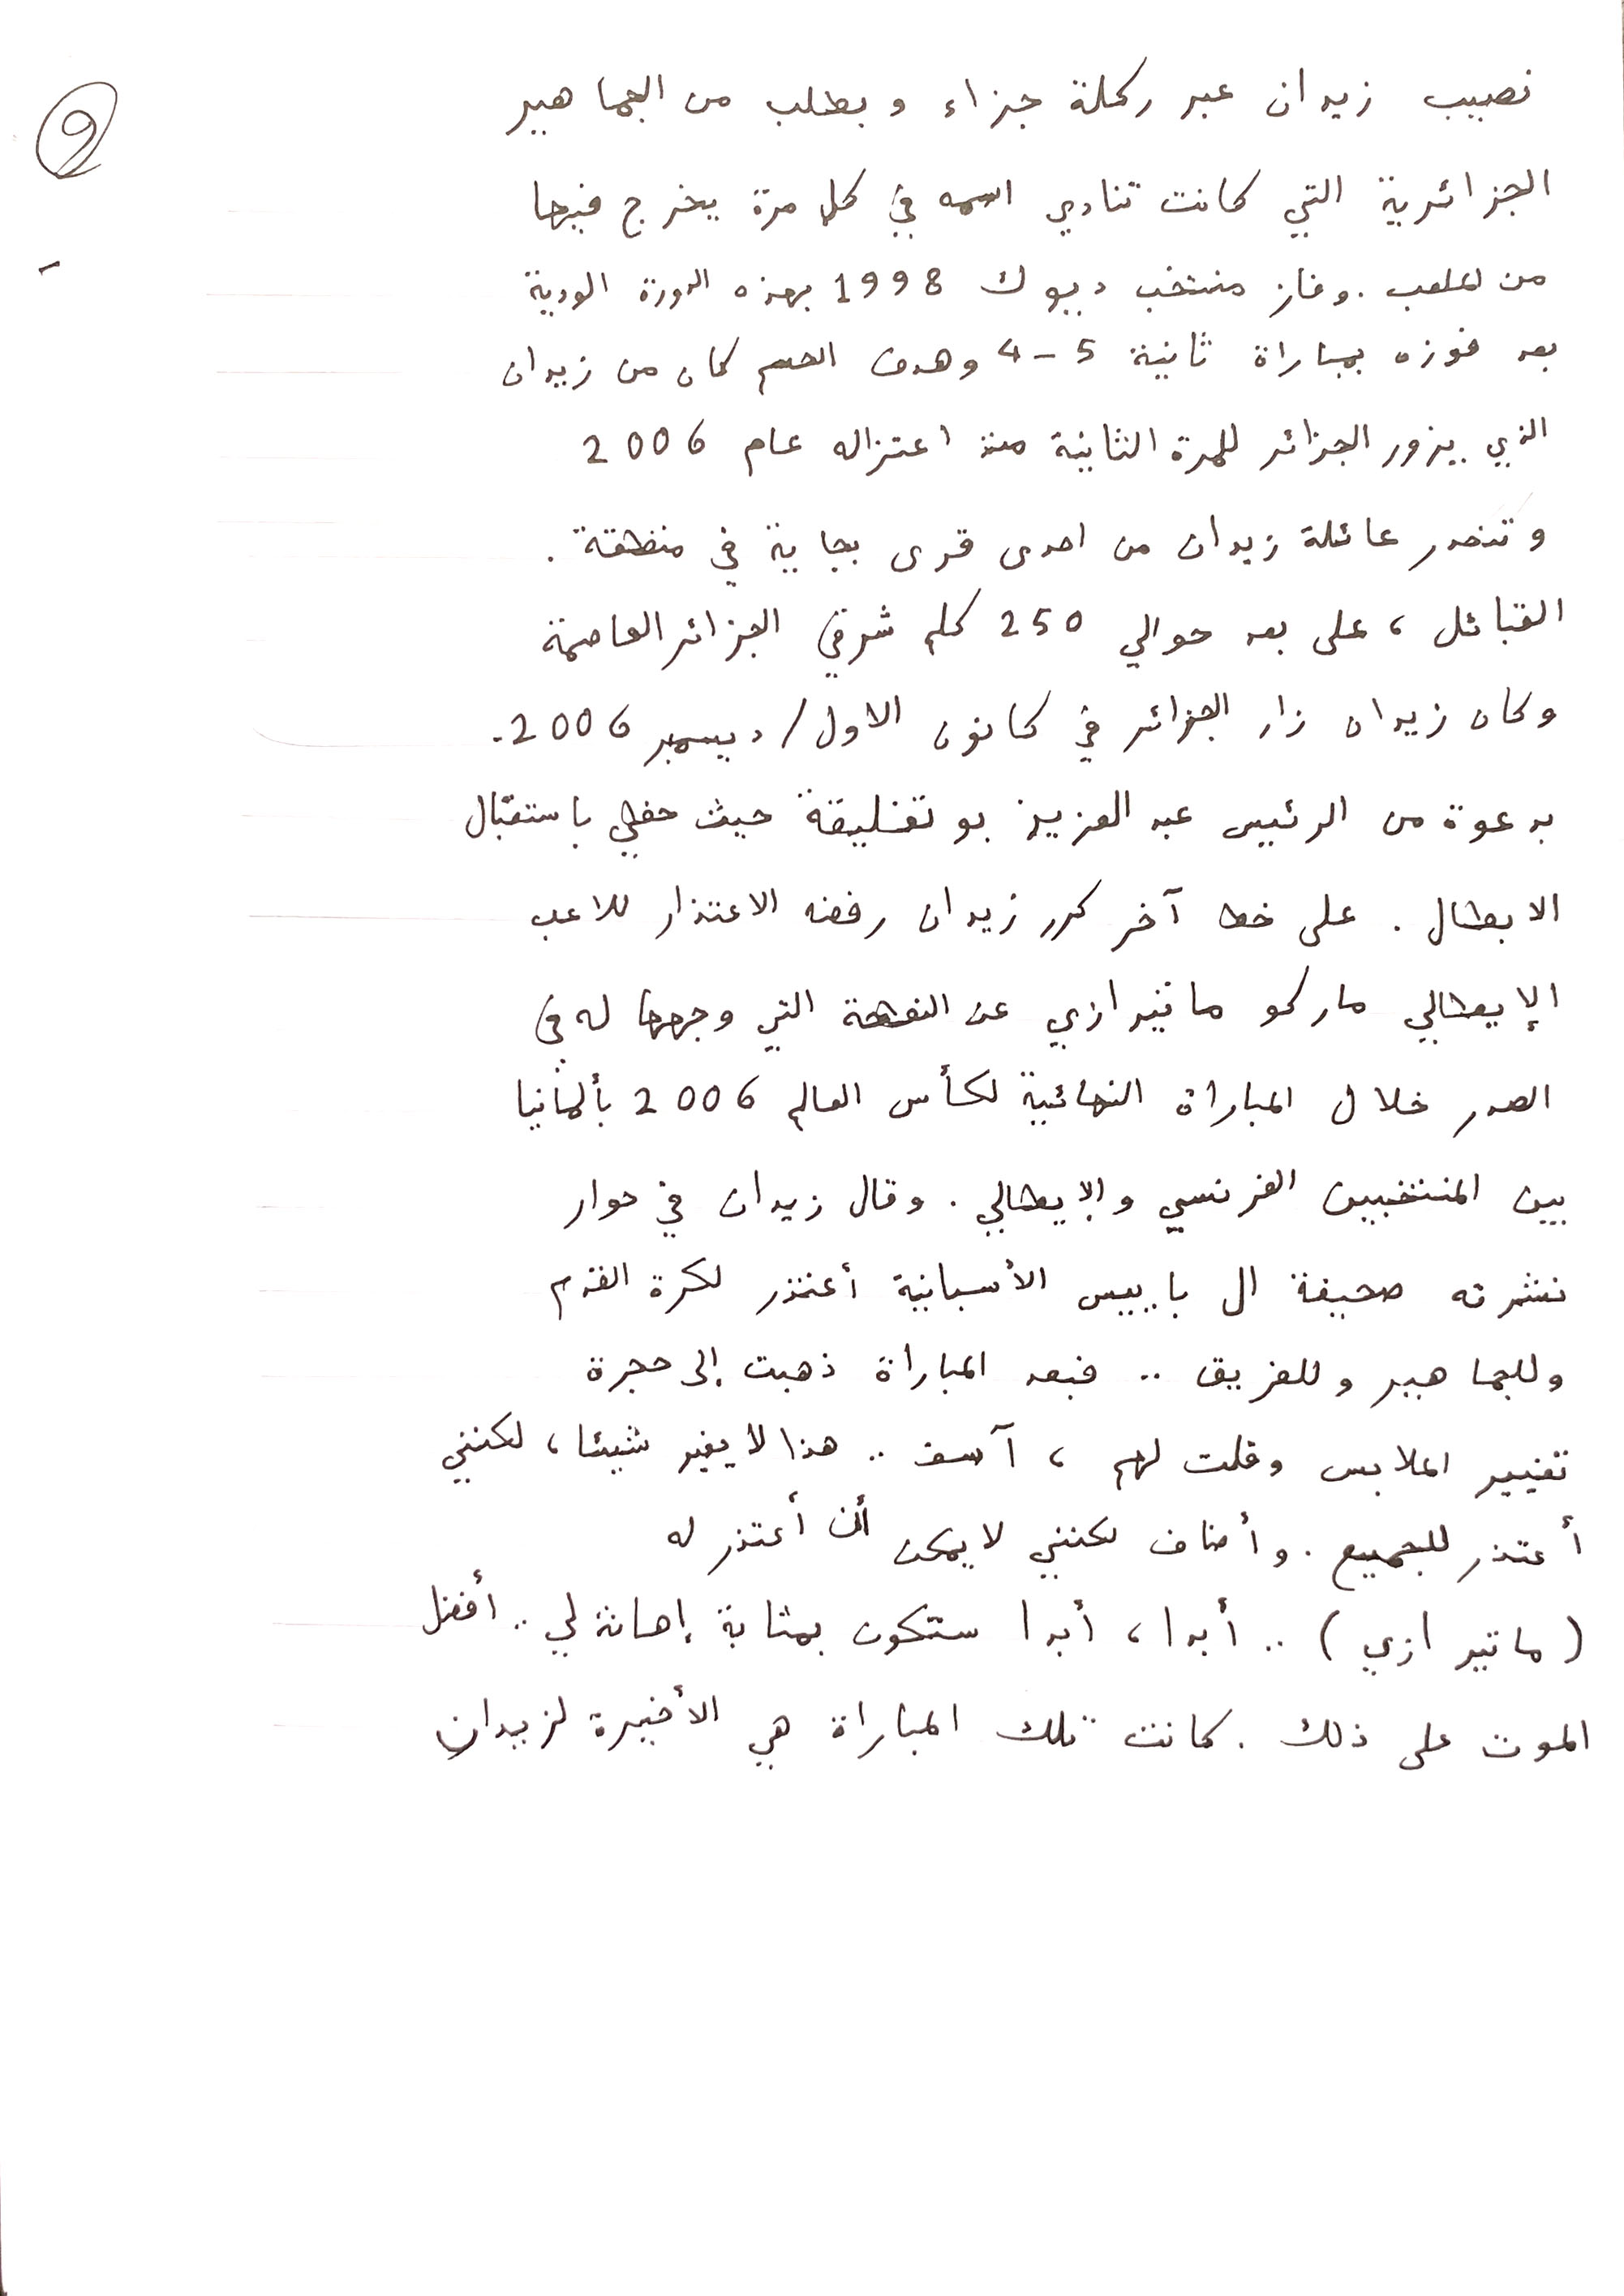 9
نصيب زيدان عبر ركلة جزاء و بطلب من الجماهير
الجزائرية التي كانت تنادي اسمه في كل مرة يخرج فيها
من لملعب . وفاز منتخب ديبوك 1998 بهذه الدورة الودية
بعد فوزه بمباراة ثانية 5 - 4 وهدف الحسم كان من زيدان
الذي يزور الجزائر للمرة الثانية منذ اعتزاله عام 2006
وتنحدر عائلة زيدان من احدى قرى بجاية في منطقة .
القبائل ، على بعد حوالي 250 كلم شرقي الجزائر العاصمة
وكان زيدان زار الجزائر في كانون الاول / ديسمبر 2006 -
بدعوة من الرئيس عبد العزيز بوتفليقة حيث حظي باستقبال
الابطال . على خط آخر كرر زيدان رفضه الاعتذار للاعب
الإيطالي ماركو ماتيرازي عن النطحة التي وجهها له في
الصدر خلال المباراة النهائية لكأس العالم 2006 بألمانيا
بين المنتخبين الفرنسي والإيطالي . وقال زيدان في حوار
نشرته صحيفة ال باييس الأسبانية أعتذر لكرة القدم
وللجماهير وللفريق .. فبعد المباراة ذهبت إلى حجرة
تغيير الملابس وقلت لهم ، آسف .. هذا لا يغير شيئا ، لكنني
أعتذر للجميع . وأضاف لكنني لا يمكن أن أعتذر له
( ماتيرازي ) .. أبدا ، أبدا ستكون بمثابة إهانة لي .. أفضل
الموت على ذلك . كانت تلك المباراة هي الأخيرة لزيدان